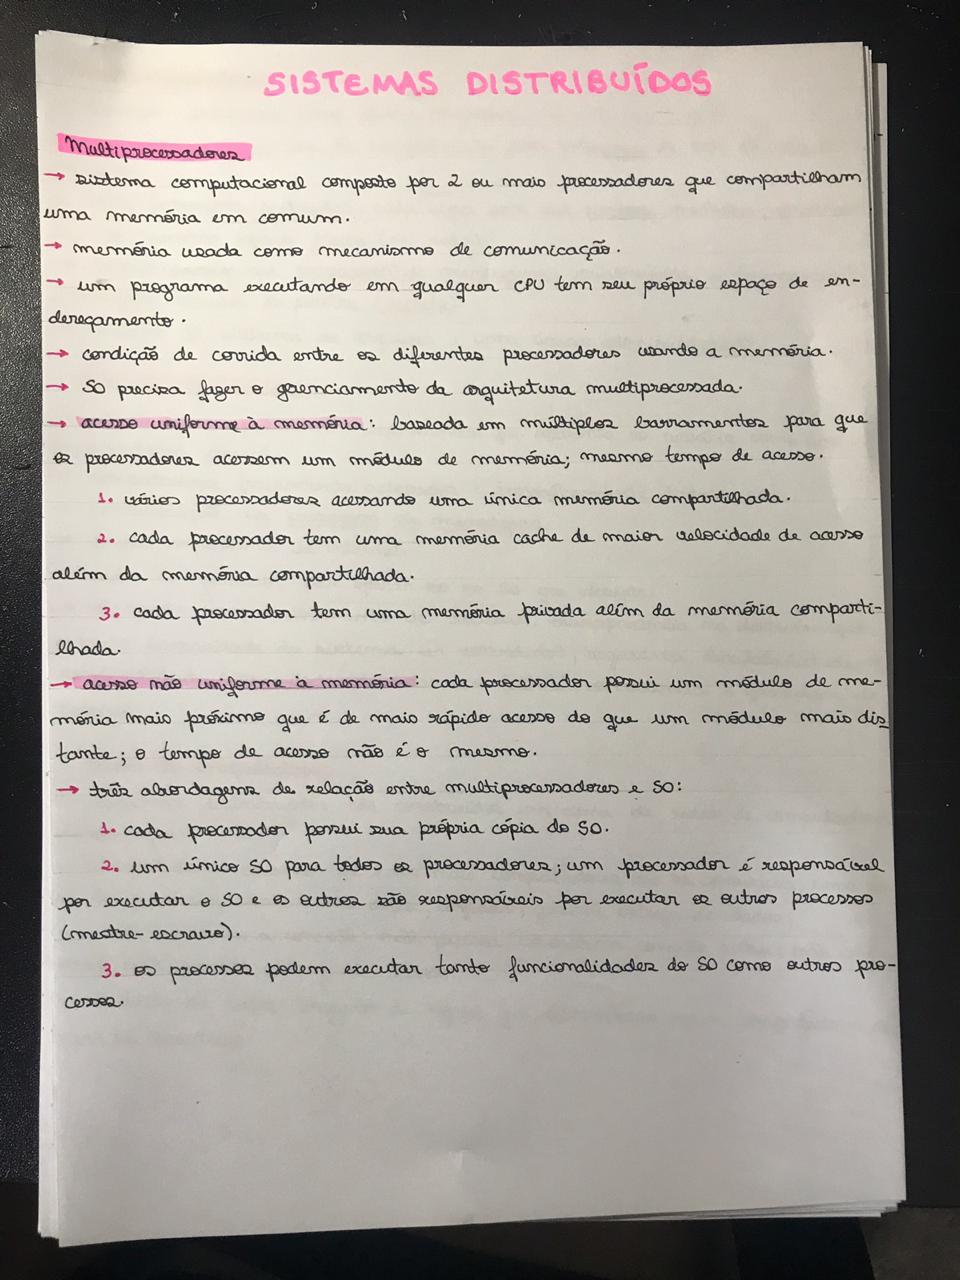 SISTEMAS DISTRIBUÍDOS
Multiprocessadores
→ sistema computacional composto por 2 ou mais processadores que compartilham
uma memória em comum.
→ memória usada como mecanismo de comunicação.
→ um programa executando em qualquer CPU tem seu próprio espaço de en-
dereçamento.
→ condição de corrida entre os diferentes processadores usando a memória.
→ SO precisa fazer o gerenciamento da arquitetura multiprocessada.
→ acesso uniforme à memória: baseada em múltiplos barramentos para que
os processadores acessem um módulo de memória; mesmo tempo de acesso.
1. vários processadores acessando uma única memória compartilhada.
2. cada processador tem uma memória cache de maior velocidade de acesso
além da memória compartilhada.
3. cada processador tem uma memória privada além da memória comparti-
lhada.
→ acesso não uniforme à memória: cada processador possui um módulo de me-
mória mais próximo que é de mais rápido acesso do que um módulo mais dis
tante; o tempo de acesso não é o mesmo.
→ três abordagens de relação entre multiprocessadores e SO:
1. cada processador possui sua própria cópia do SO.
2. um único SO para todos os processadores; um processador é responsável
por executar o SO e os outros são responsáveis por executar os outros processos
(mestre-escravo).
3. os processos podem executar tanto funcionalidades do SO como outros pro-
cessos.